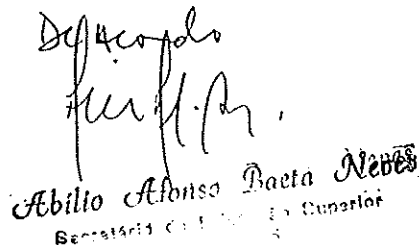 De Acordo
Abilio Afonso Baeta Neves
Secretário Superior